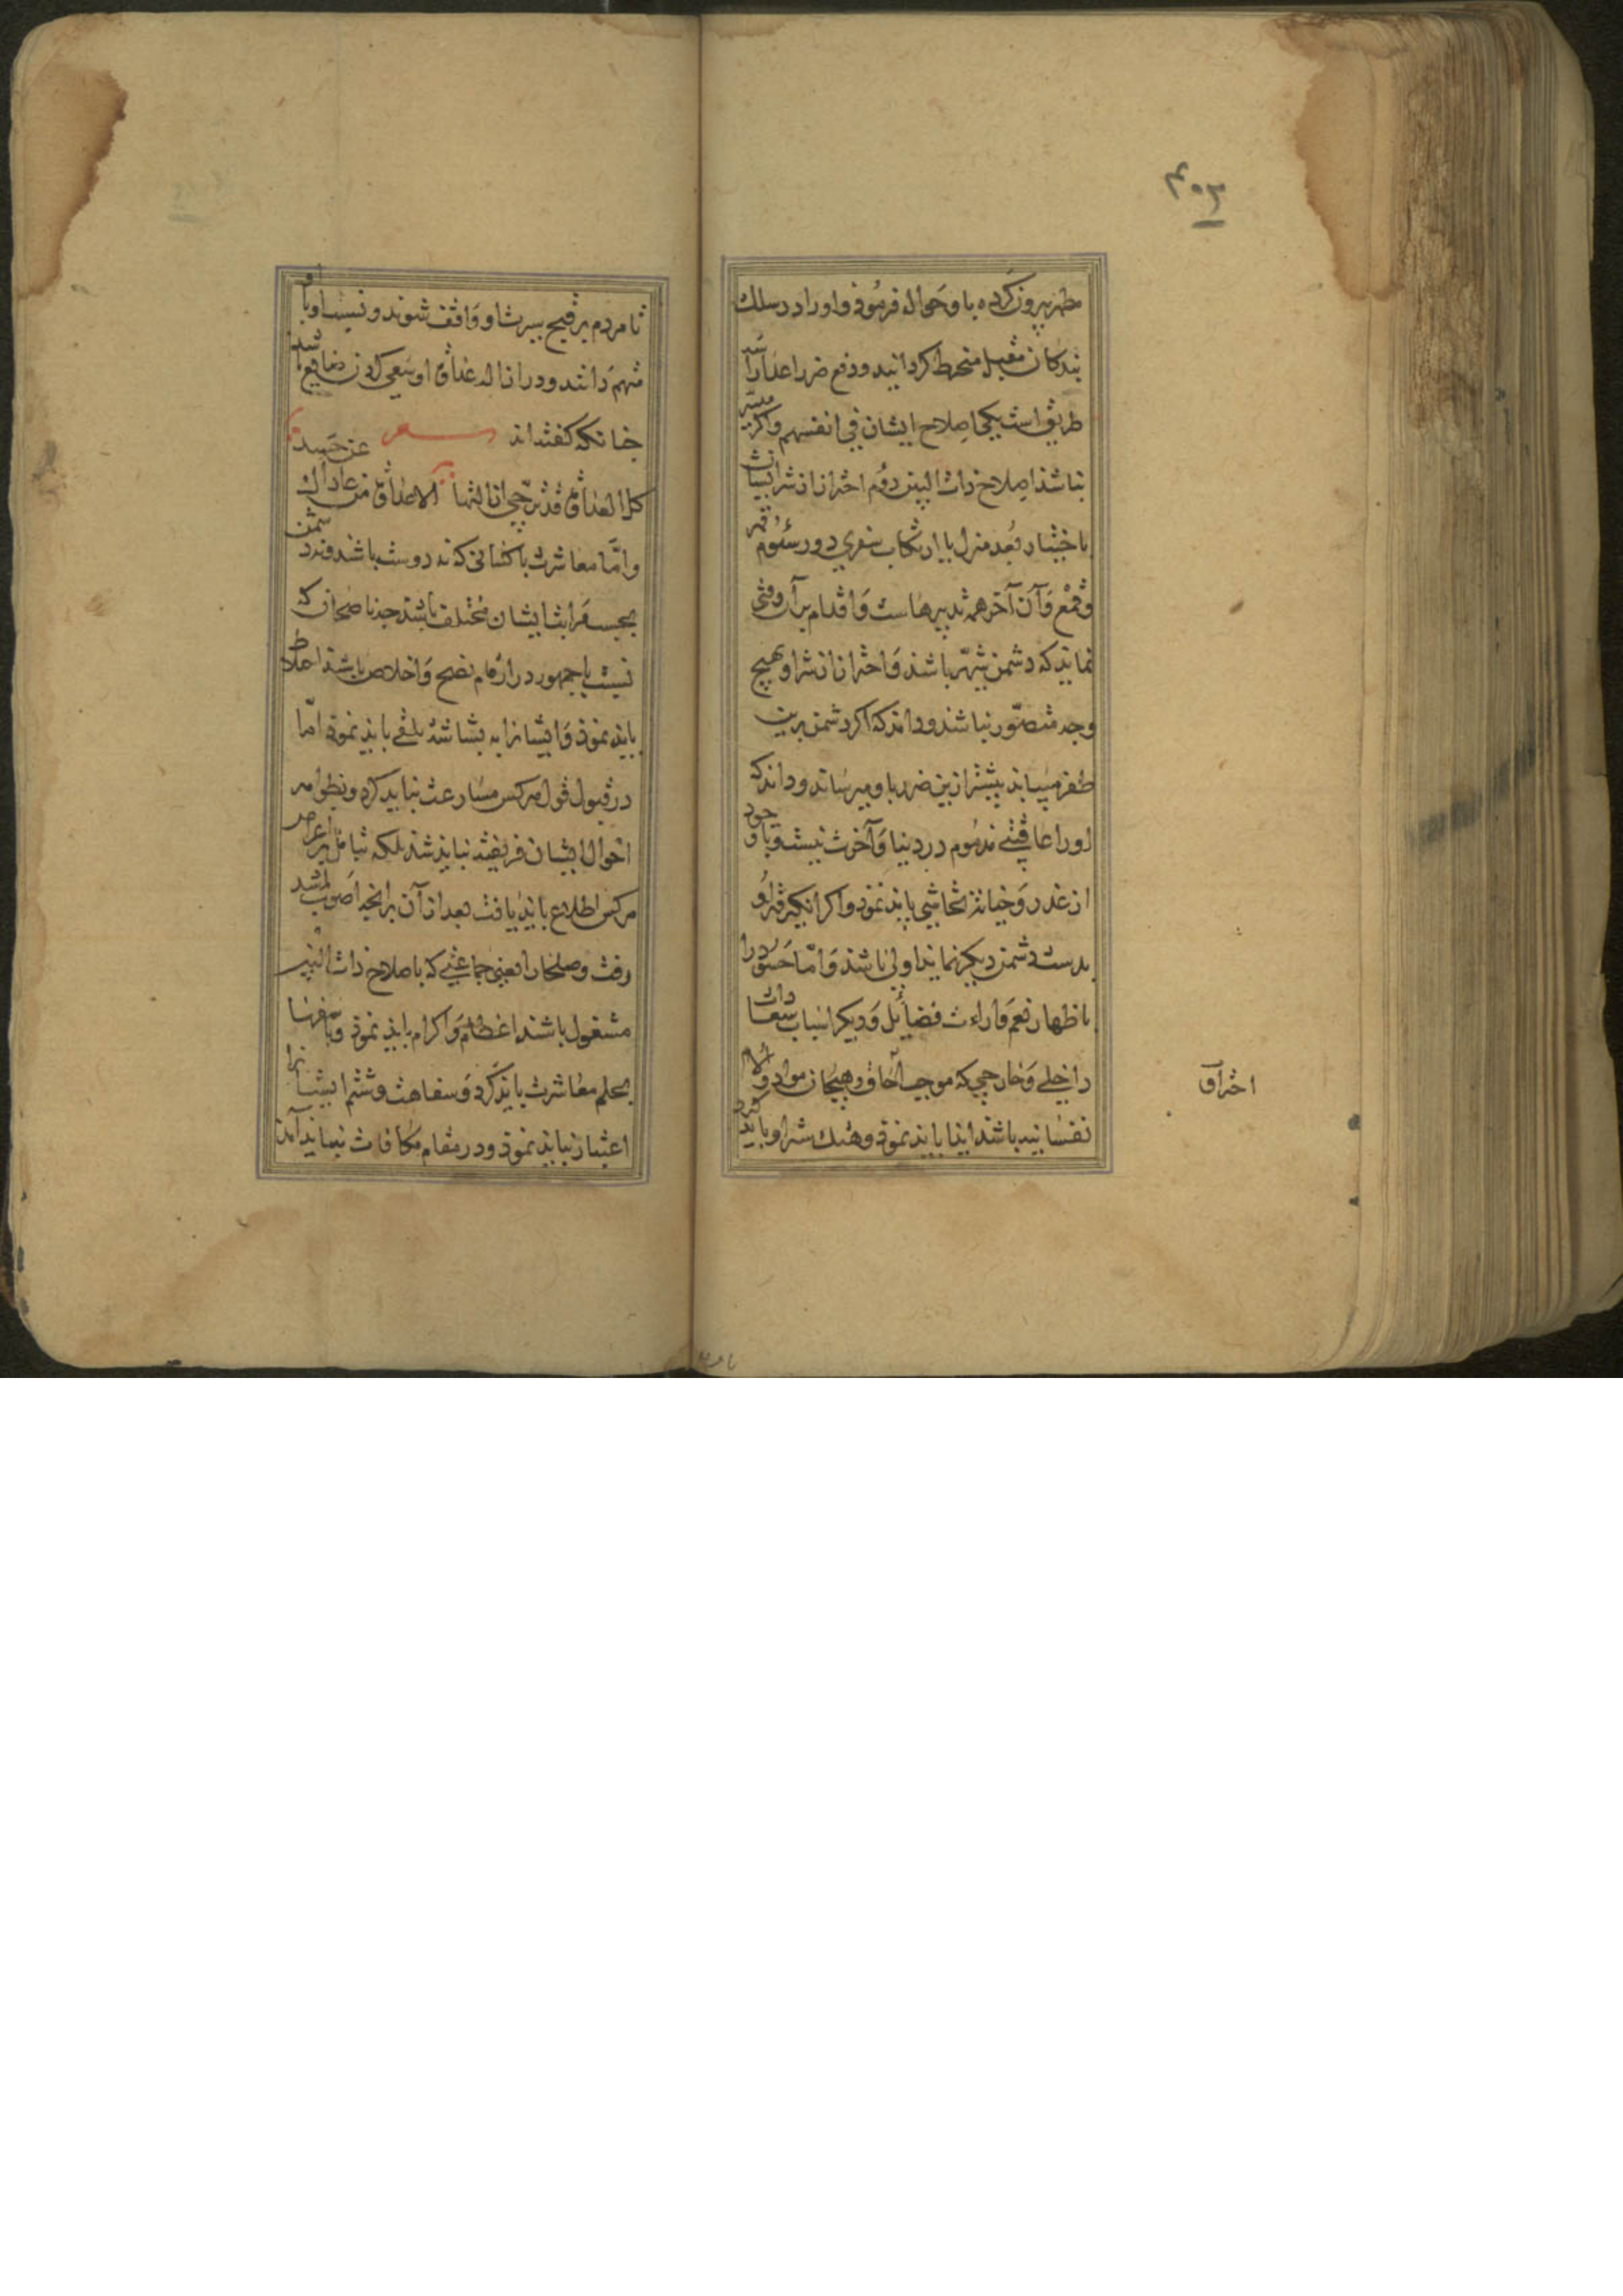 ۴۰۳
مطهر بیرون کرده باو حواله فرموذ و او را در سلک
بندکان مقبل منخرط کردانید و دفع ضرر اعدا را سه
طریق است یکی اصلاح ایشان فی انفسهم و اکر میسر
نباشذ اصلاح ذات البین دوم احتراز از شر ایشان
باختیار بُعد منزل یا ارتکاب سفری دور سئوم قهر
و قمع و آن آخر همه تدبیرهاست و اقدام بر آن وقتی
نماید که دشمن شریر باشذ و احتراز از شر او بهیچ
وجه متصور نباشذ و داند که اکر دشمن برین
ظفر میبابذ بیشتر ازین ضرر باو میرساند و داند که
او را عاقبتی مذموم در دنیا و آخرت نیست و با وجود
از غدر و خیانت تحاشی باید نموذ و اکر انکیز قهر او
بدست دشمن دیکر نماید اولی باشذ و اما حسود را
باظهار نعم و اراءت فضائل و دیکر اسباب سعادات
داخلی و خارجی که موجب احراق و هیجان مواد و آلام
احتراق
نفسانیه باشذ ایذا باید نموذ و هتک ستر او باید کرد
تا مردم بر قبح سیرت او واقف شوند و نسبت او با او
متهم دانند و در ازاله عداوة او سعی کردن ضایع باشد
چنانکه کفته اند شعر عن حسد
کل العداوة قد ترجی ازالتها الا عداوة من عاداک
و اما معاشرت با کسانی که نه دوست باشند و نه دشمن
بحسب مراتب ایشان مختلف باشذ جه ناصحان که
نسبت با جمهور در مقام نصح و اخلاص باشند اختلاط
بایذ نموذ و ایشان را به بشاشت تلقی بایذ نموذ اما
در قبول قول هر کس مسارعت نباید کرد و بظواهر
احوال ایشان فریفته نبایذ شذ بلکه بتامل بر اغراض
هر کس اطلاع بایذ یافت بعد از آن بر انجه اصوب باشد
رفت و صلحا را یعنی جماعتی که باصلاح ذات البین
مشغول باشند اعظام و اکرام بایذ نموذ و با سفها
بحلم معاشرت بایذ کرد و سفاهت و شتم ایشان را
اعتبار نبایذ نموذ و در مقام مکافات نباید آمذ